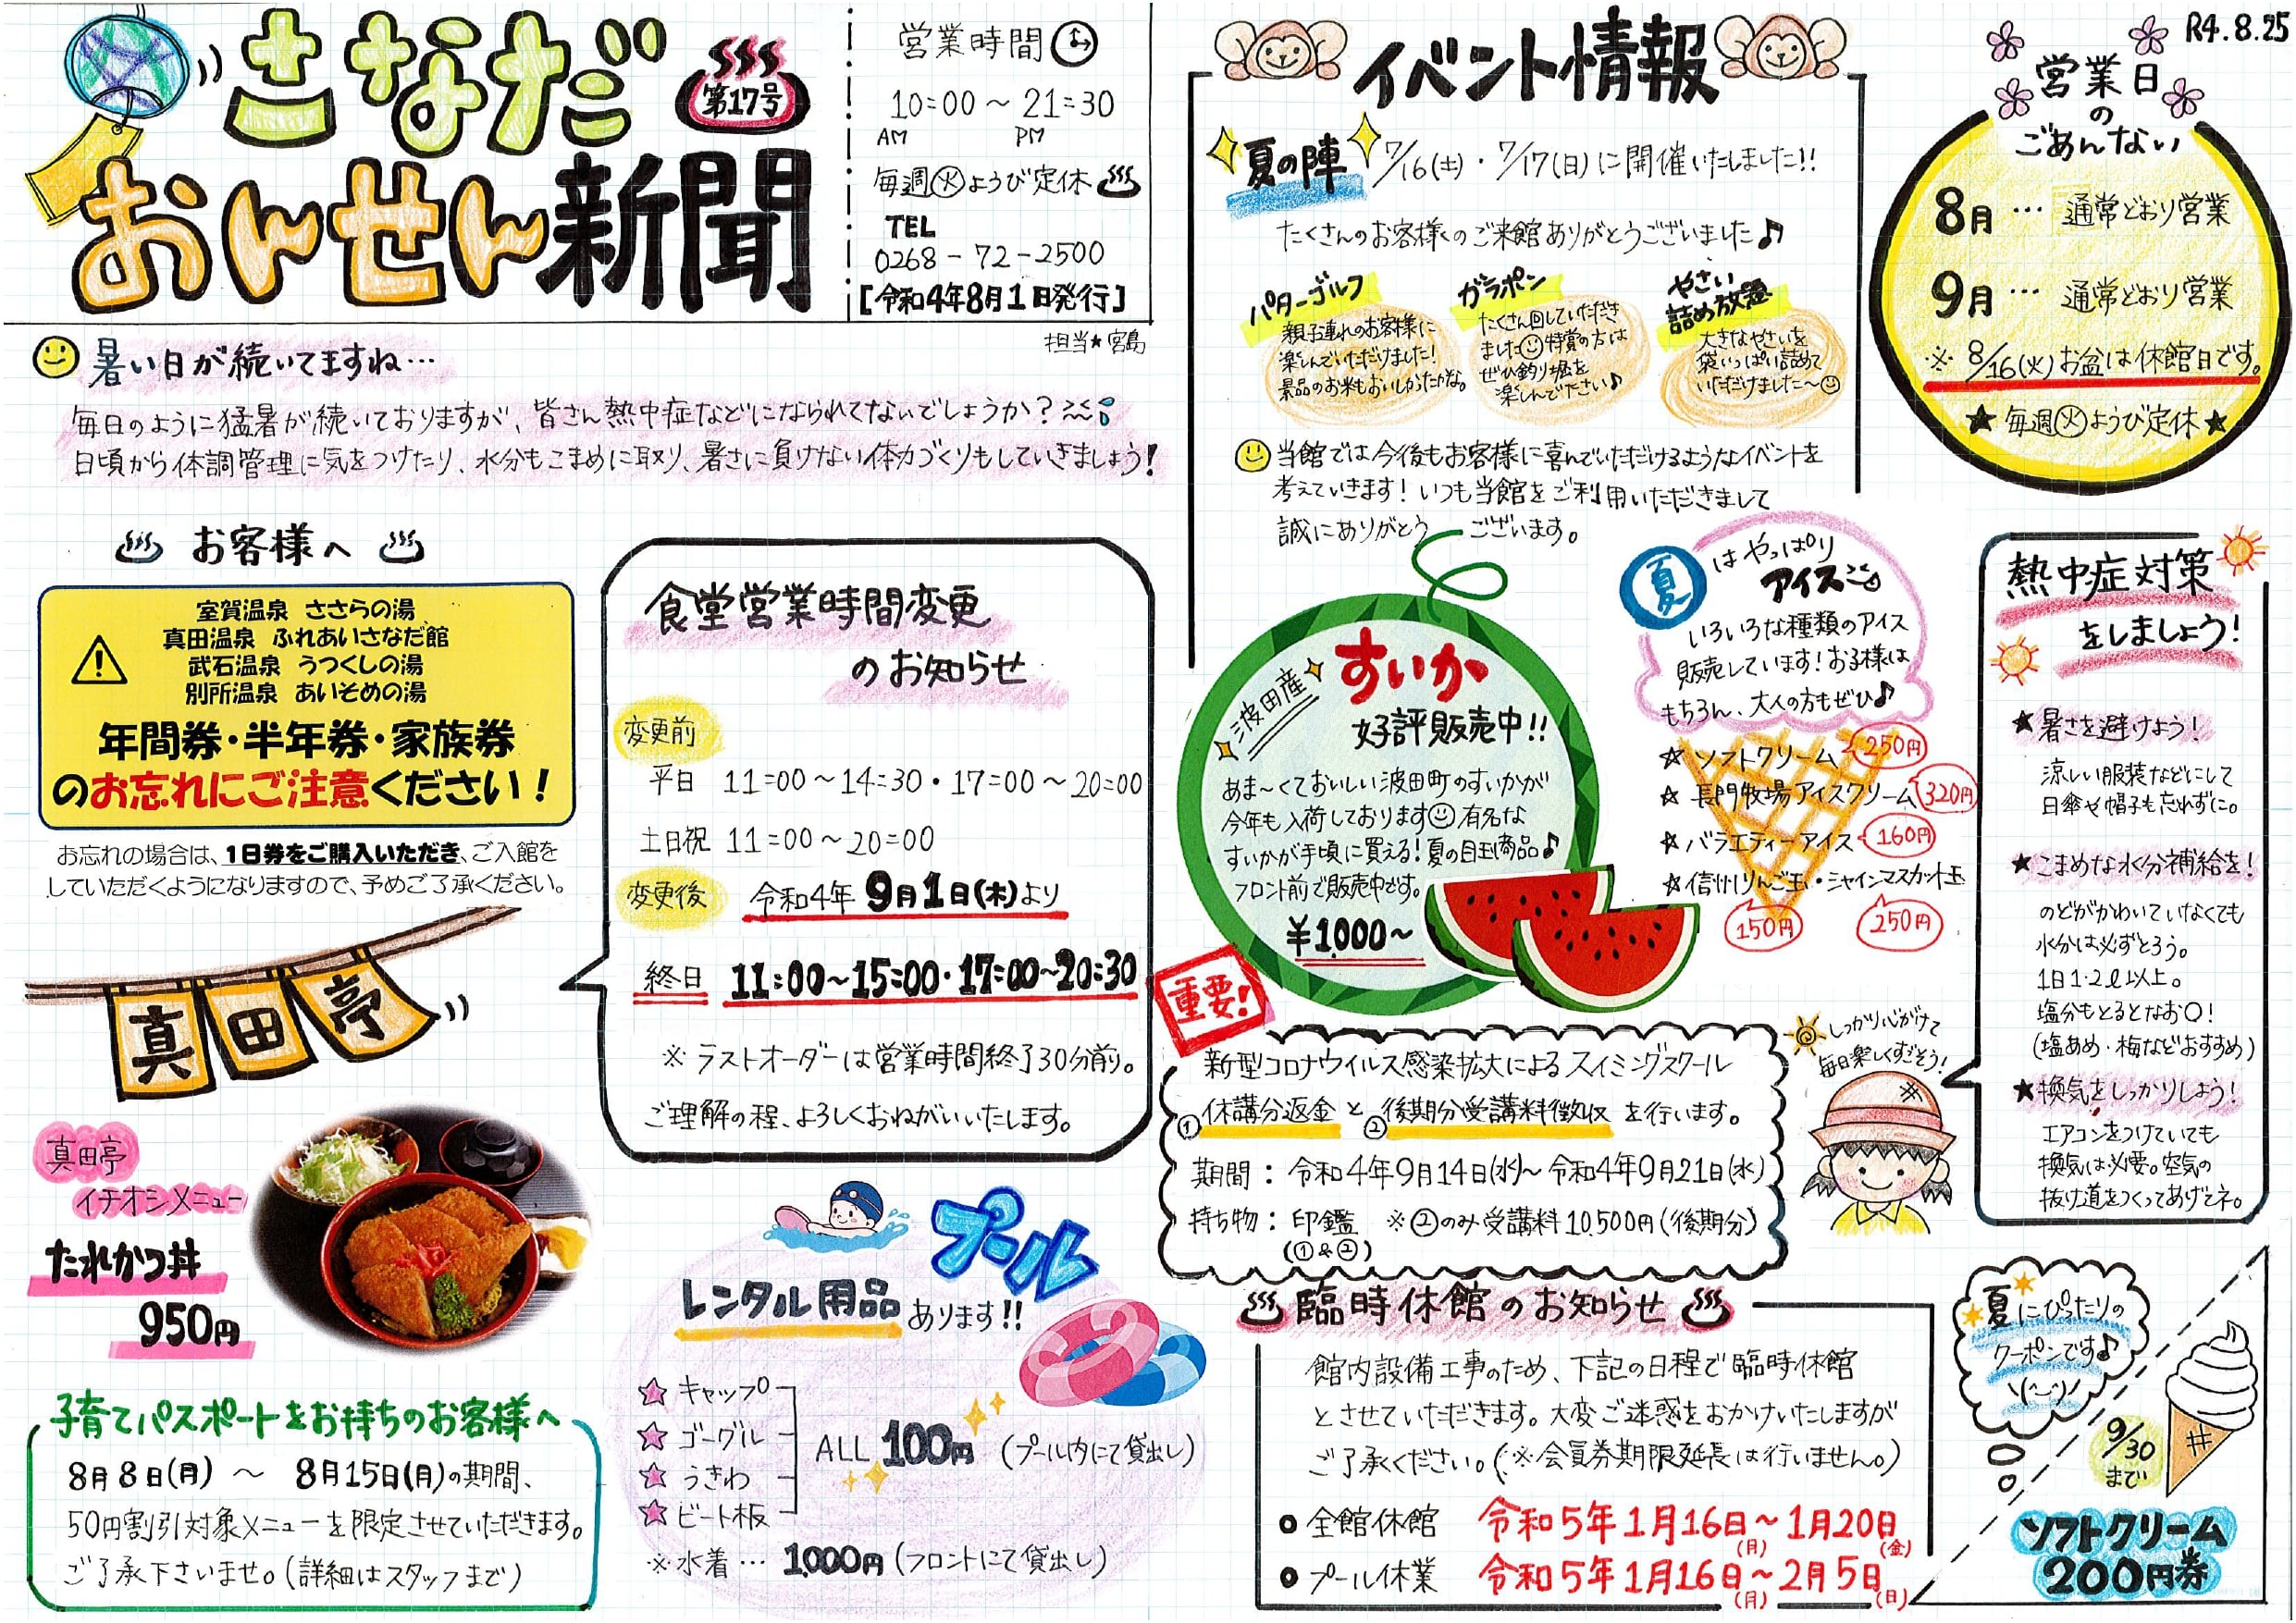 さなだ
おんせん新聞
第17号
営業時間
10:00～21:30
AM PM
毎週㊋ようび定休
TEL
0268-72-2500
[令和4年8月1日発行]
担当★宮島
暑い日が続いてますね…
毎日のように猛暑が続いておりますが、皆さん熱中症などになられてないでしょうか？
日頃から体調管理に気をつけたり、水分もこまめに取り、暑さに負けない体力づくりもしていきましょう！
お客様へ
室賀温泉 ささらの湯
真田温泉 ふれあいさなだ館
武石温泉 うつくしの湯
別所温泉 あいそめの湯
年間券・半年券・家族券
のお忘れにご注意ください！
お忘れの場合は、1日券をご購入いただき、ご入館を
していただくようになりますので、予めご了承ください。
真田亭
真田亭
イチオシメニュー
たれかつ丼
950円
子育てパスポートをお持ちのお客様へ
8月8日(月) ～ 8月15日(月)の期間、
50円割引対象メニューを限定させていただきます。
ご了承下さいませ。(詳細はスタッフまで)
食堂営業時間変更
のお知らせ
変更前
平日 11:00～14:30・17:00～20:00
土日祝 11:00～20:00
変更後 令和4年 9月1日(木)より
終日 11:00～15:00・17:00～20:30
※ ラストオーダーは営業時間終了30分前。
ご理解の程、よろしくおねがいいたします。
プール
レンタル用品あります!!
☆ キャップ
☆ ゴーグル
☆ うきわ
☆ ビート板
ALL 100円 (プール内にて貸出し)
※水着… 1,000円(フロントにて貸出し)
イベント情報
夏の陣 7/16(土)・7/17(日)に開催いたしました!!
たくさんのお客様のご来館ありがとうございました♪
パターゴルフ
親子連れのお客様に
楽しんでいただけました！
景品のお米もおいしかったかな。
ガラポン
たくさん回していただき
ました☺特賞の方は
ぜひ釣り堀を
楽しんで下さい♪
やさい
詰め放題
大きなやさいを
袋いっぱい詰めて
いただけました～☺
当館では今後もお客様に喜んでいただけるようなイベントを
考えていきます！いつも当館をご利用いただきまして
誠にありがとうございます。
波田産
すいか
好評販売中!!
あま～くておいしい波田町のすいかが
今年も入荷しております☺有名な
すいかが手頃に買える！夏の目玉商品♪
フロント前で販売中です。
¥1,000～
夏はやっぱり
アイス
いろいろな種類のアイス
販売しています！お子様は
もちろん、大人の方もぜひ♪
☆ ソフトクリーム 250円
☆ 長門牧場アイスクリーム 320円
☆ バラエティーアイス 160円
☆ 信州りんご玉・シャインマスカット玉
150円 250円
重要！
新型コロナウイルス感染拡大によるスイミングスクール
①休講分返金 と ②後期分受講料徴収 を行います。
期間：令和4年9月14日(水)～令和4年9月21日(水)
持ち物：印鑑 ※②のみ受講料10,500円(後期分)
(①&②)
臨時休館のお知らせ
館内設備工事のため、下記の日程で臨時休館
とさせていただきます。大変ご迷惑をおかけいたしますが
ご了承ください。(※会員券期限延長は行いません。)
全館休館 令和5年1月16日(月)～1月20日(金)
プール休業 令和5年1月16日(月)～2月5日(日)
R4.8.25
営業日
の
ごあんない
8月… 通常どおり営業
9月… 通常どおり営業
※8/16(火)お盆は休館日です。
★毎週㊋ようび定休★
熱中症対策
をしましょう！
★暑さを避けよう！
涼しい服装などにして
日傘や帽子も忘れずに。
★こまめな水分補給を！
のどがかわいていなくても
水分は必ずとろう。
1日1.2ℓ以上。
塩分もとるとなお○！
(塩あめ・梅などおすすめ)
★換気をしっかりしよう！
エアコンをつけていても
換気は必要。空気の
抜け道をつくってあげてネ。
しっかり心がけて
毎日楽しくすごそう！
夏にぴったりの
クーポンです♪
9/30
まで
ソフトクリーム
200円券